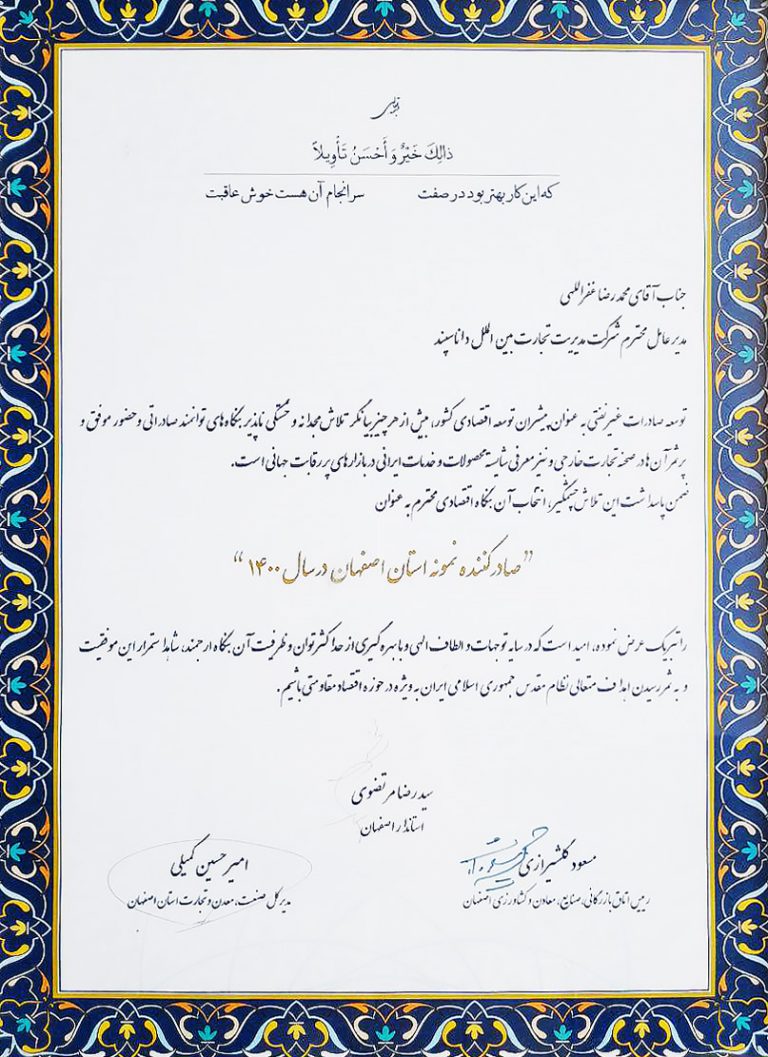 ذالِکَ خَیْرٌ وَ أَحْسَنُ تَأْوِیلاً
که این کار بهتر بود در صفت سرانجام آن هست خوش عاقبت
جناب آقای محمدرضا غفراللهی
مدیر عامل محترم شرکت مدیریت تجارت بین الملل دانا سپند
توسعه صادرات غیرنفتی به عنوان پیشران توسعه اقتصادی کشور، بیش از هر چیز بیانگر تلاش مجدانه و خستگی ناپذیر بنگاه های توانمند صادراتی و حضور موفق و
پرثمر آن ها در صحنه تجارت خارجی و نیز معرفی شایسته محصولات و خدمات ایرانی در بازارهای پررقابت جهانی است.
ضمن پاسداشت این تلاش چشمگیر، انتخاب آن بنگاه اقتصادی محترم به عنوان
”صادرکننده نمونه استان اصفهان در سال ۱۴۰۰“
را تبریک عرض نموده، امید است که در سایه توجهات و الطاف الهی و با بهره گیری از حداکثر توان و ظرفیت آن بنگاه ارجمند، شاهد استمرار این موفقیت
و به ثمر رسیدن اهداف متعالی نظام مقدس جمهوری اسلامی ایران به ویژه در حوزه اقتصاد مقاومتی باشیم.
سید رضا مرتضوی
استاندار اصفهان
مسعود گلشیرازی
رییس اتاق بازرگانی، صنایع، معادن و کشاورزی اصفهان
امیرحسین کمیلی
مدیر کل صنعت، معدن و تجارت استان اصفهان